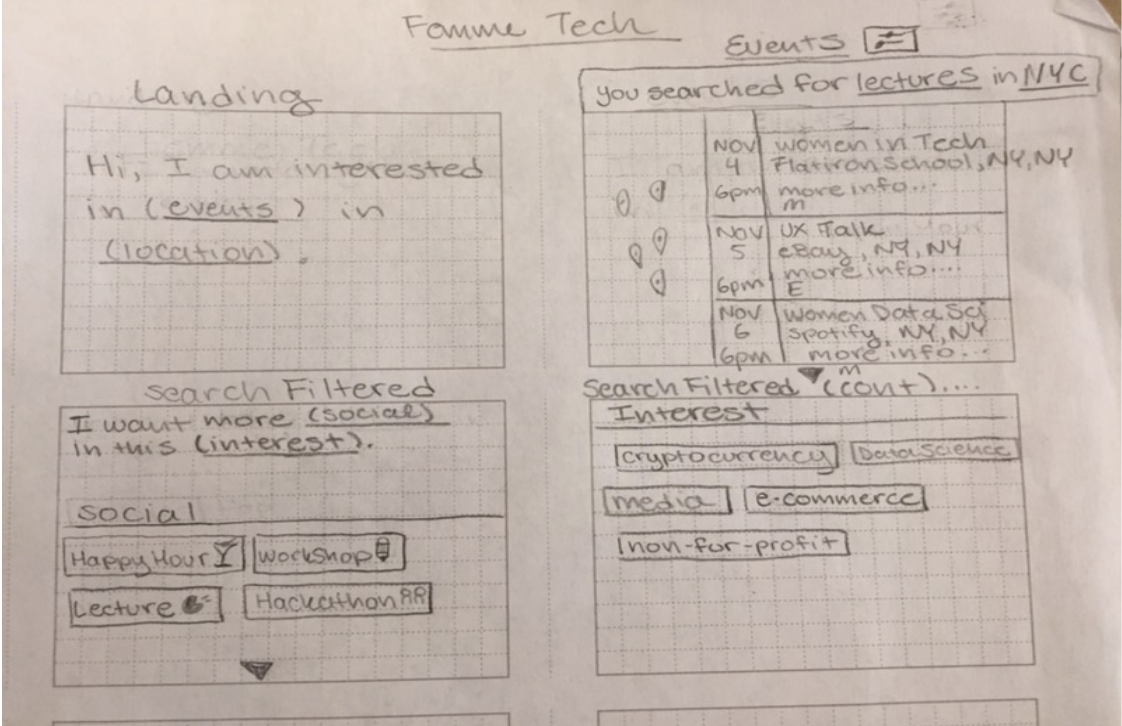 Famme Tech
Landing
Hi, I am interested
in (events) in
(location).
Events
you searched for lectures in NYC
NOV women in Tech
4 Flatiron School, NY, NY
6pm more info...
m
NOV UX Talk
5 eBay, NY, NY
more info....
6pm E
NOV women Data Sci
6 Spotify, NY, NY
6pm more info...
m
search Filtered
I want more (social)
in this (interest).
social
Happy Hour
workshop
Lecture
Hackathon
Search Filtered (cont)....
Interest
cryptocurrency
Data Science
media
e-commerce
non-for-profit